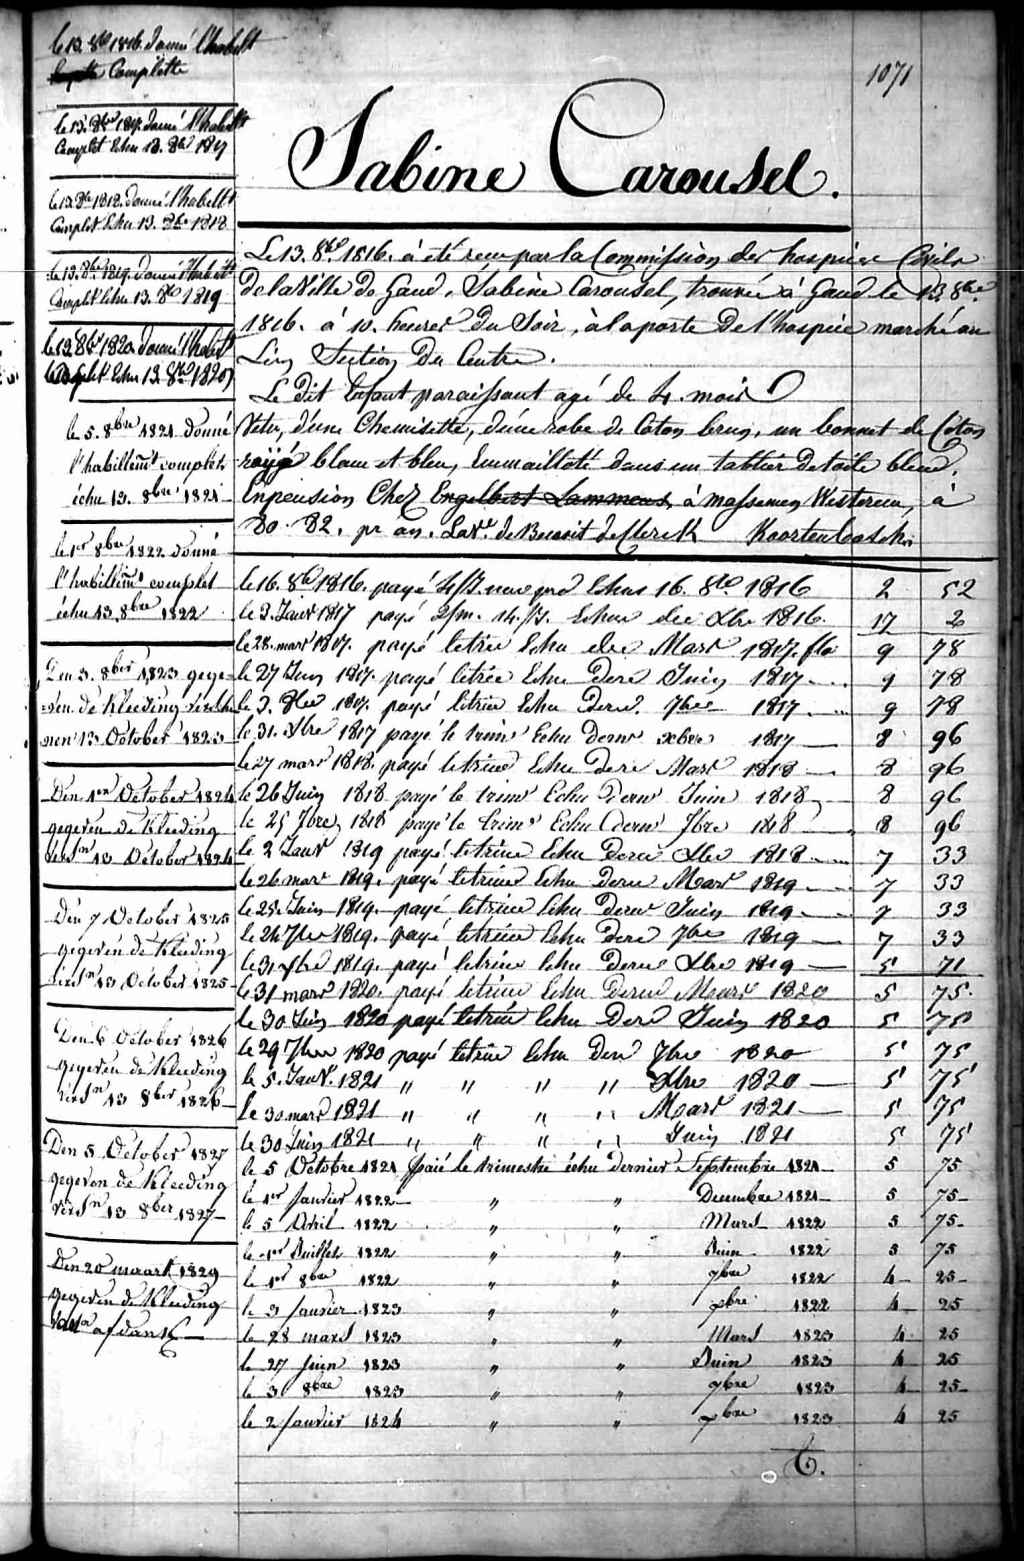 1071
Sabine Carousel.
Le 13. 8bre 1816. à été reçu par la Commission des hospices Civils
de la Ville de Gand, Sabine Carousel, trouvée à Gand le 13. 8bre
1816. à 10. heures du Soir, à la porte de l'hospice marché au
Lin Section du Centre.
Le dit Enfant paraissant agé de 4. mois
Vetu, d'une Chemisette, d'une robe de Coton brun, un bonnet de Coton
rayé blanc et bleu, Emmailloté dans un tablier de toile bleue.
En pension Chez Engelbert Lammens, à massemen Westerem, à
80-82. pr an. La Ve. de Benoit deClerck
le 13. 8bre 1816. donné l'habillt
Complette
le 13. 8bre 1817. donné l'habillt
Complet Echu 13. 8bre 1817
le 13. 8bre 1818. donné l'habillt
Complet Echu 13. 8bre 1818
le 13. 8bre 1819. donné l'habillt
Complet Echu 13. 8bre 1819
le 13 8bre 1820. donné l'habillt
Complet Echu 13. 8bre 1820
le 5. 8bre 1821 donné
l'habillemt complet
échu 13. 8bre 1821
le 1er 8bre 1822 donné
l'habillemt complet
échu 13. 8bre 1822
Den 3. 8ber 1823 gege-
=ven de Kleeding versche
nen 13 October 1823
Den 1en October 1824
gegeven de Kleeding
versn 13 October 1824
Den 7 October 1825
gegeven de Kleeding
versn 13 October 1825
Den 6 October 1826
gegeven de Kleeding
versn 13 8ber 1826
Den 5 October 1827
gegeven de Kleeding
versn 13 8ber 1827
Den 20 maart 1829
gegeven de Kleeding
le 16. 8bre 1816. payé Echus 16. 8bre 1816 2 52
le 3. Janvr 1817 payé Echus Xbre 1816. 17 2
le 28. mars 1817. payé le trim Echu Mars 1817. 9 78
le 27 Juin 1817. payé le trim Echu Dere Juin 1817 9 78
le 3. 8bre 1817. payé le trim Echu Dern. 7bre 1817 9 78
le 31. Xbre 1817 payé le trimr Echu dernr xbre 1817 8 96
le 27 mars 1818. payé le trim Echu Dere Mars 1818 8 96
le 26 Juin 1818 payé le trimr Echu dernr Juin 1818 8 96
le 25 7bre 1818 payé le trimr Echu dernr 7bre 1818 8 96
le 2 Janvr 1819 payé le trim Echu Dern Xbre 1818 7 33
le 26 mars 1819. payé le trim Echu Dern Mars 1819 7 33
le 25. Juin 1819. payé le trim Echu Dernr Juin 1819 7 33
le 24 7bre 1819. payé le trim Echu Dere 7bre 1819 7 33
le 31 Xbre 1819. payé le trim Echu Dern Xbre 1819 5 71
le 31 mars 1820. payé le trim Echu Dern Mars 1820 5 75.
le 30 Juin 1820 payé le trim Echu Dere Juin 1820 5 75
le 29 7bre 1820 payé le trim Echu Den 7bre 1820 5 75
le 5. Janv. 1821 " " " " Xbre 1820 5 75
le 30 mars 1821 " " " " Mars 1821 5 75
le 30 Juin 1821 " " " " Juin 1821 5 75
le 5 Octobre 1821 payé le trimestre échu dernier Septembre 1821 5 75
le 1er Janvier 1822 " " Decembre 1821 5 75
le 5 Avril 1822 " " Mars 1822 5 75
le 1er Juillet 1822 " " Juin 1822 5 75
le 1er 8bre 1822 " " 7bre 1822 4 25
le 3 Janvier 1823 " " xbre 1822 4 25
le 28 mars 1823 " " Mars 1823 4 25
le 27 Juin 1823 " " Juin 1823 4 25
le 3 8bre 1823 " " 7bre 1823 4 25
le 2 Janvier 1824 " " xbre 1823 4 25
T.